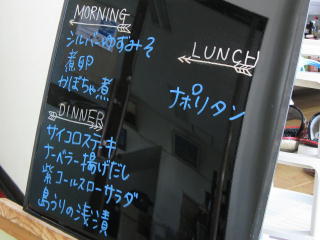 MORNING
シルバーゆずみそ
煮卵
かぼちゃ煮
LUNCH
ナポリタン
DINNER
サイコロステーキ
ナーベラー揚げだし
紫コールスローサラダ
島づけの浅漬